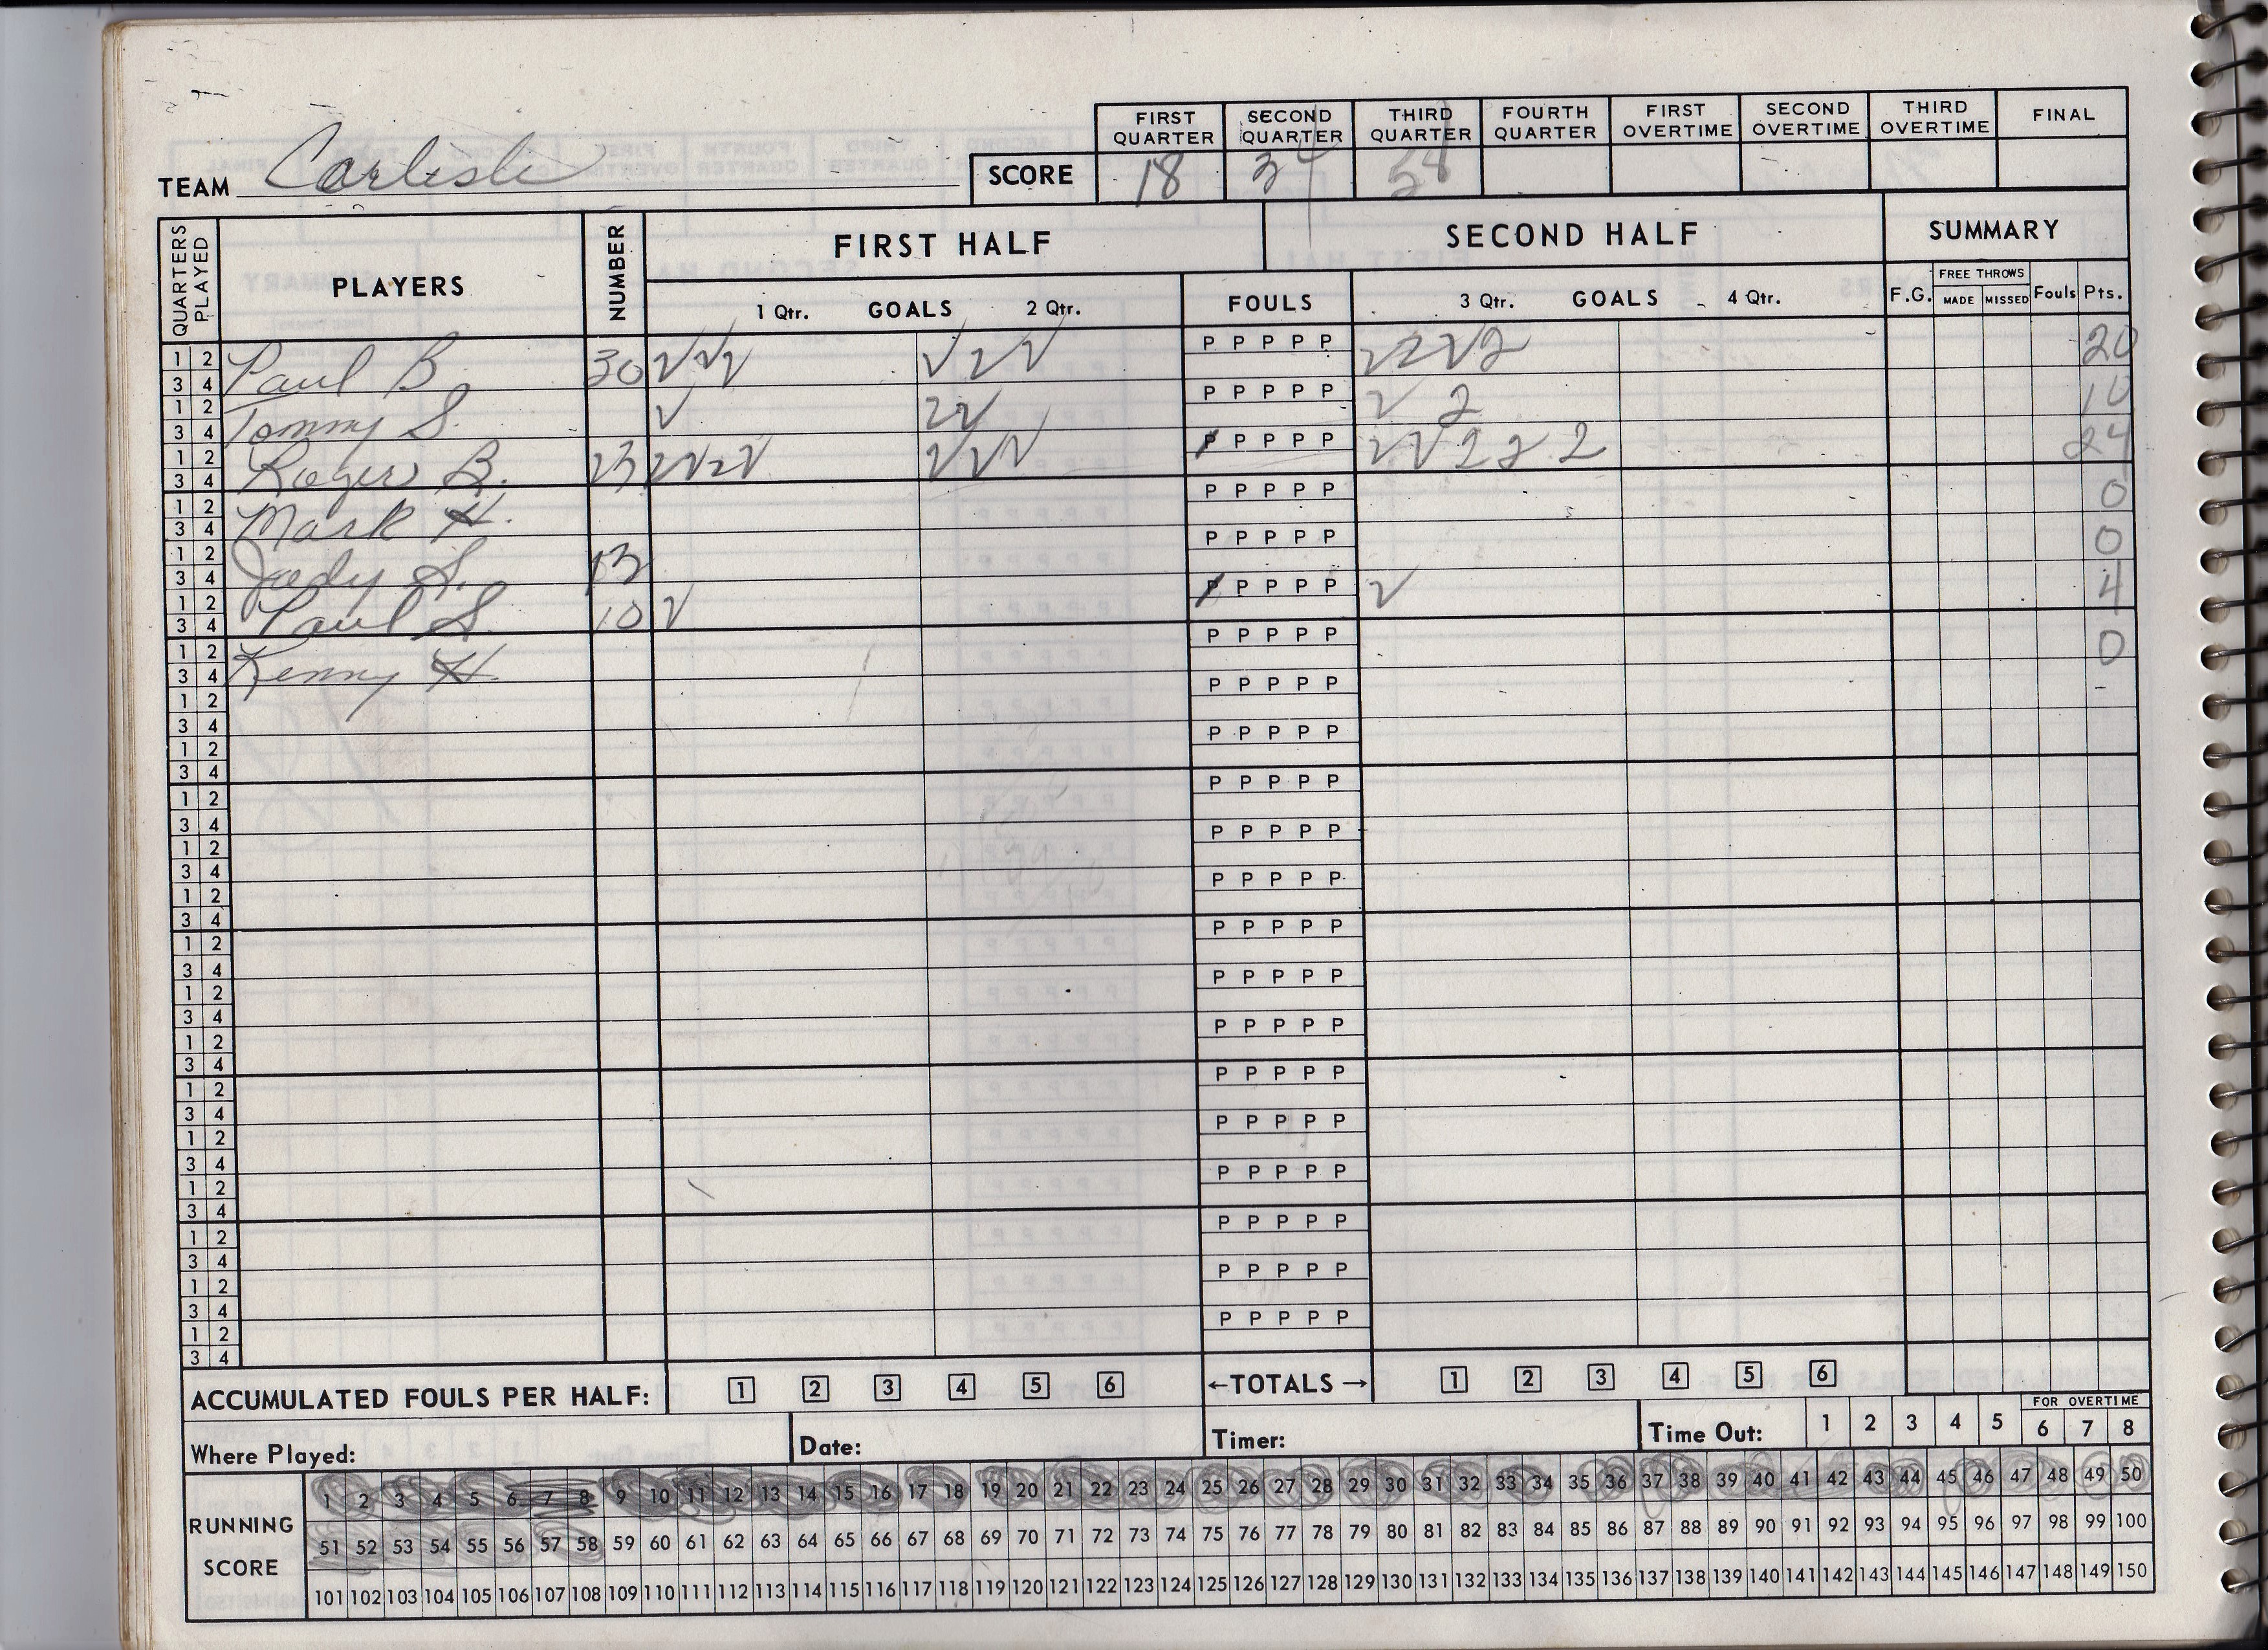 FIRST QUARTER SECOND QUARTER THIRD QUARTER FOURTH QUARTER FIRST OVERTIME SECOND OVERTIME THIRD OVERTIME FINAL
TEAM Carlisle SCORE 18 34
QUARTERS PLAYED PLAYERS NUMBER FIRST HALF SECOND HALF SUMMARY
1 Qtr. GOALS 2 Qtr. FOULS 3 Qtr. GOALS 4 Qtr. F.G. FREE THROWS MADE MISSED Fouls Pts.
1 2 3 4 Paul B. 30 2 2 2 2 2 2 P P P P P 2 2 2 2 20
1 2 3 4 Tommy S. 2 2 2 P P P P P 2 2 10
1 2 3 4 Roger B. 23 2 2 2 2 2 2 2 P P P P P 2 2 2 2 2 24
1 2 3 4 Mark H. P P P P P 0
1 2 3 4 Jody S. 13 P P P P P 0
1 2 3 4 Paul S. 10 2 P P P P P 2 4
1 2 3 4 Kenny H. P P P P P 0
1 2 3 4 P P P P P
1 2 3 4 P P P P P
1 2 3 4 P P P P P
1 2 3 4 P P P P P
1 2 3 4 P P P P P
1 2 3 4 P P P P P
1 2 3 4 P P P P P
1 2 3 4 P P P P P
1 2 3 4 P P P P P
1 2 3 4 P P P P P
1 2 3 4 P P P P P
1 2 3 4 P P P P P
1 2 3 4 P P P P P
1 2 3 4 P P P P P
ACCUMULATED FOULS PER HALF: 1 2 3 4 5 6 ←TOTALS→ 1 2 3 4 5 6
Where Played: Date: Timer: Time Out: 1 2 3 4 5 FOR OVERTIME 6 7 8
RUNNING SCORE
1 2 3 4 5 6 7 8 9 10 11 12 13 14 15 16 17 18 19 20 21 22 23 24 25 26 27 28 29 30 31 32 33 34 35 36 37 38 39 40 41 42 43 44 45 46 47 48 49 50
51 52 53 54 55 56 57 58 59 60 61 62 63 64 65 66 67 68 69 70 71 72 73 74 75 76 77 78 79 80 81 82 83 84 85 86 87 88 89 90 91 92 93 94 95 96 97 98 99 100
101 102 103 104 105 106 107 108 109 110 111 112 113 114 115 116 117 118 119 120 121 122 123 124 125 126 127 128 129 130 131 132 133 134 135 136 137 138 139 140 141 142 143 144 145 146 147 148 149 150